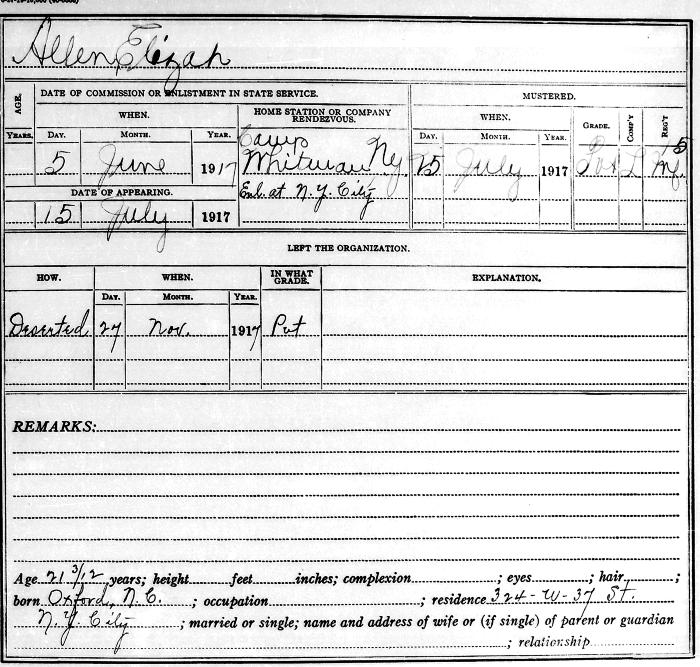 Allen, Elizah
AGE. DATE OF COMMISSION OR ENLISTMENT IN STATE SERVICE. MUSTERED.
WHEN. HOME STATION OR COMPANY RENDEZVOUS. WHEN. GRADE. COMP'Y REG'T
YEARS. DAY. MONTH. YEAR. DAY. MONTH. YEAR.
5 June 1917 Camp Whitman Ny 25 July 1917 Pvt L 15 Inf.
DATE OF APPEARING. Enl. at N.Y. City
15 July 1917
LEFT THE ORGANIZATION.
HOW. WHEN. IN WHAT GRADE. EXPLANATION.
DAY. MONTH. YEAR.
Deserted 27 Nov. 1917 Pvt
REMARKS:
Age 21 3/12 years; height feet inches; complexion ; eyes ; hair ;
born Oxford, N.C. ; occupation ; residence 324-W-37 St.
N.Y. City ; married or single; name and address of wife or (if single) of parent or guardian
; relationship